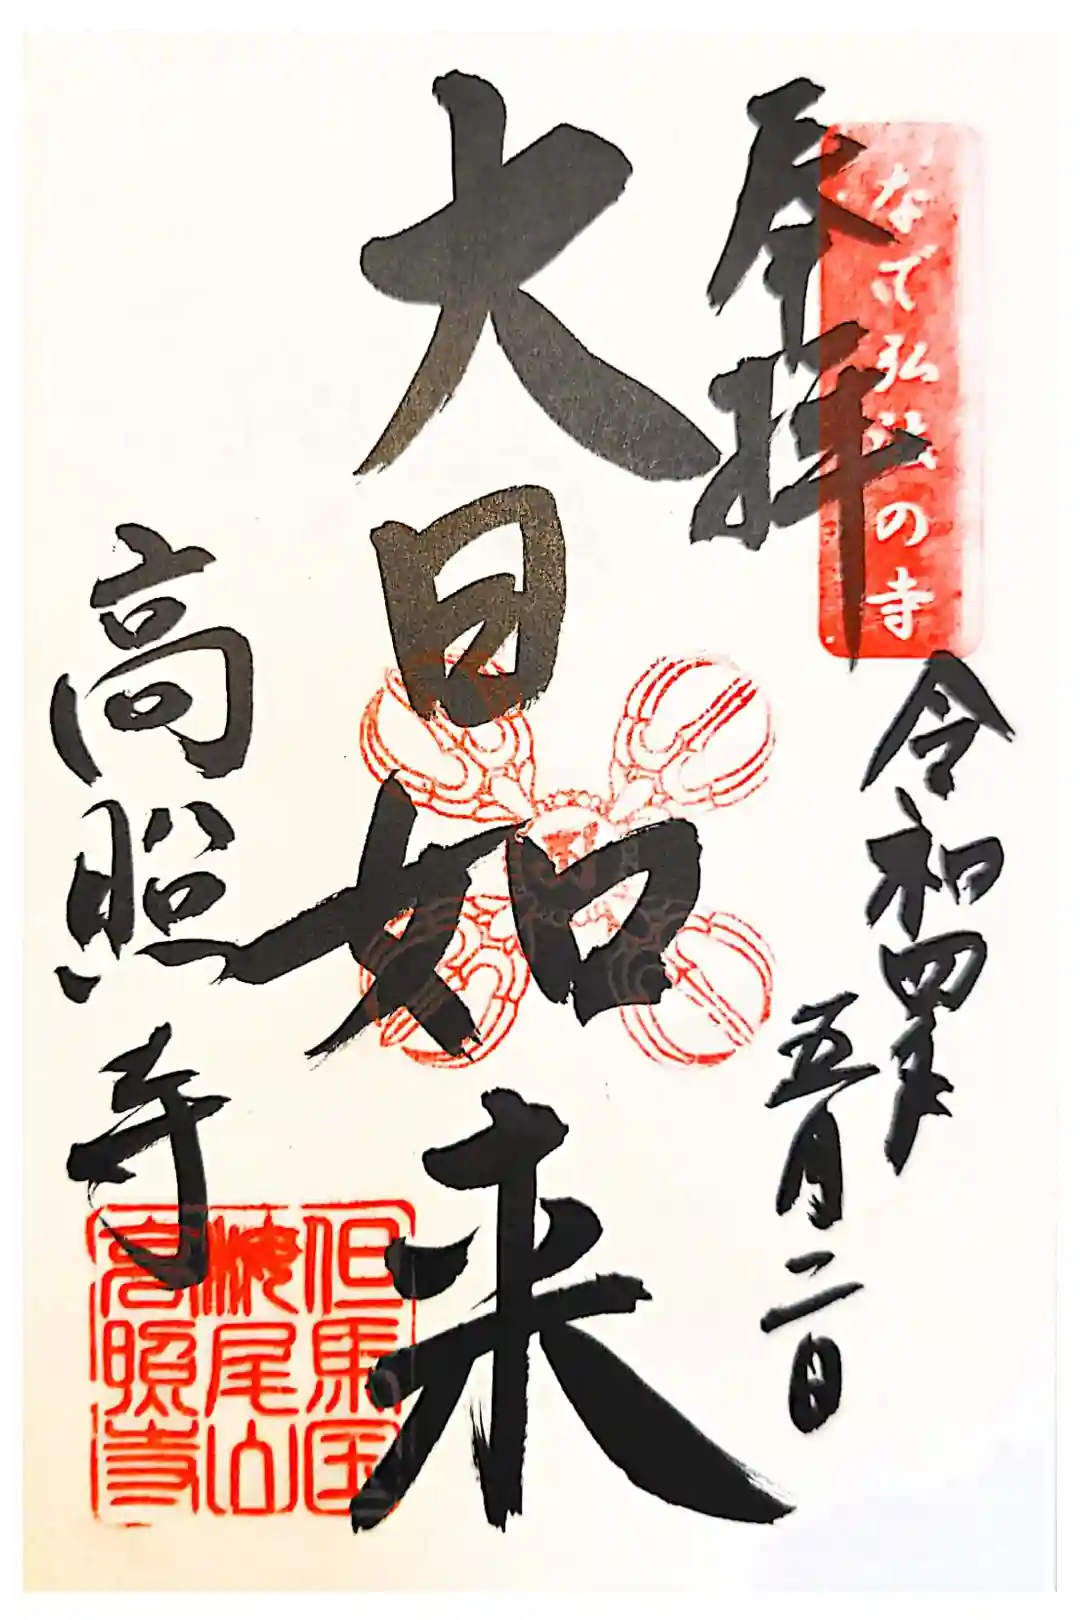 なで弘法の寺
奉拝
令和四年
五月二日
大日如来
高照寺
但馬国
尾山
高照寺